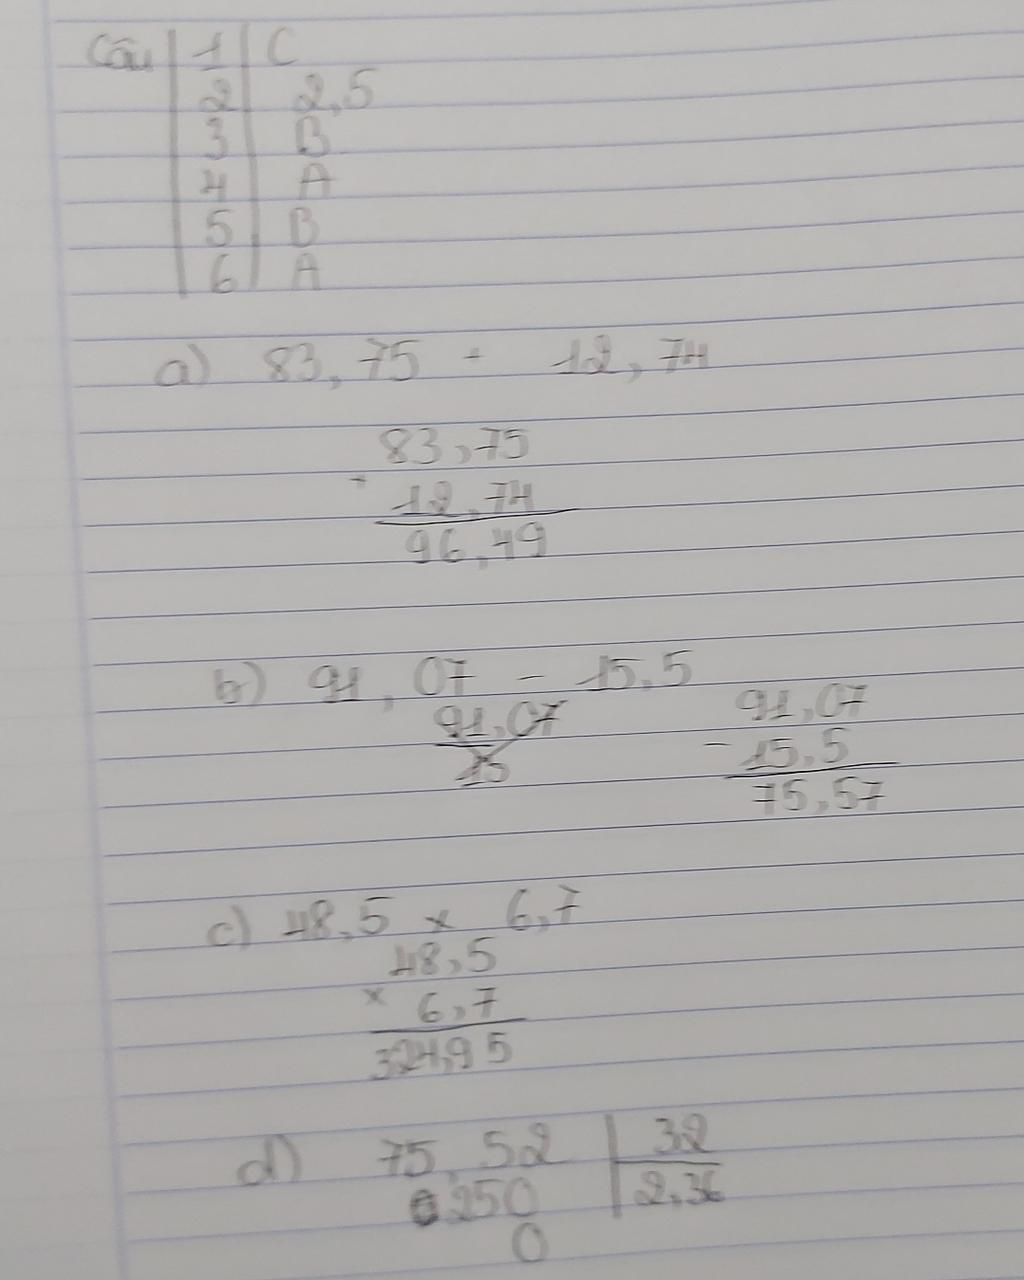 Câu 1 C
2 2,5
3 B
4 A
5 B
6 A
a) 83,75 + 12,74
83,75
+
12,74
96,49
b) 91,07 - 15,5
91,07 91,07
15 - 15,5
75,57
c) 48,5 x 6,7
48,5
x 6,7
324,95
d) 75,52 32
250 2,36
0